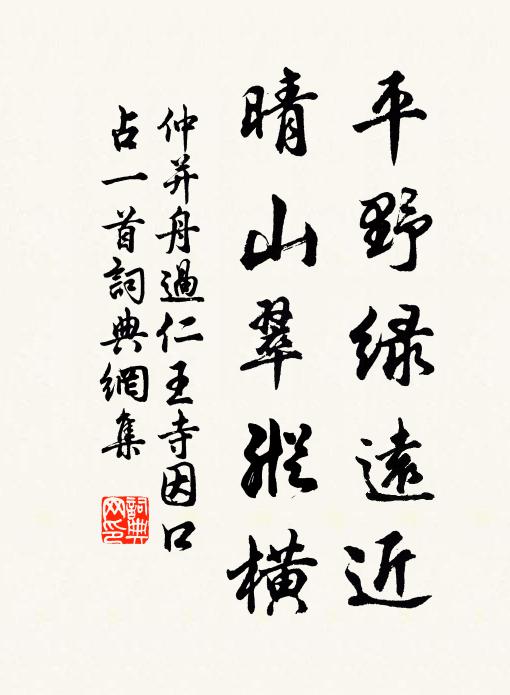 平野緑遠近
晴山翠縱橫
仲并舟過仁王寺因口
占一首詞典網集
詞典
网印